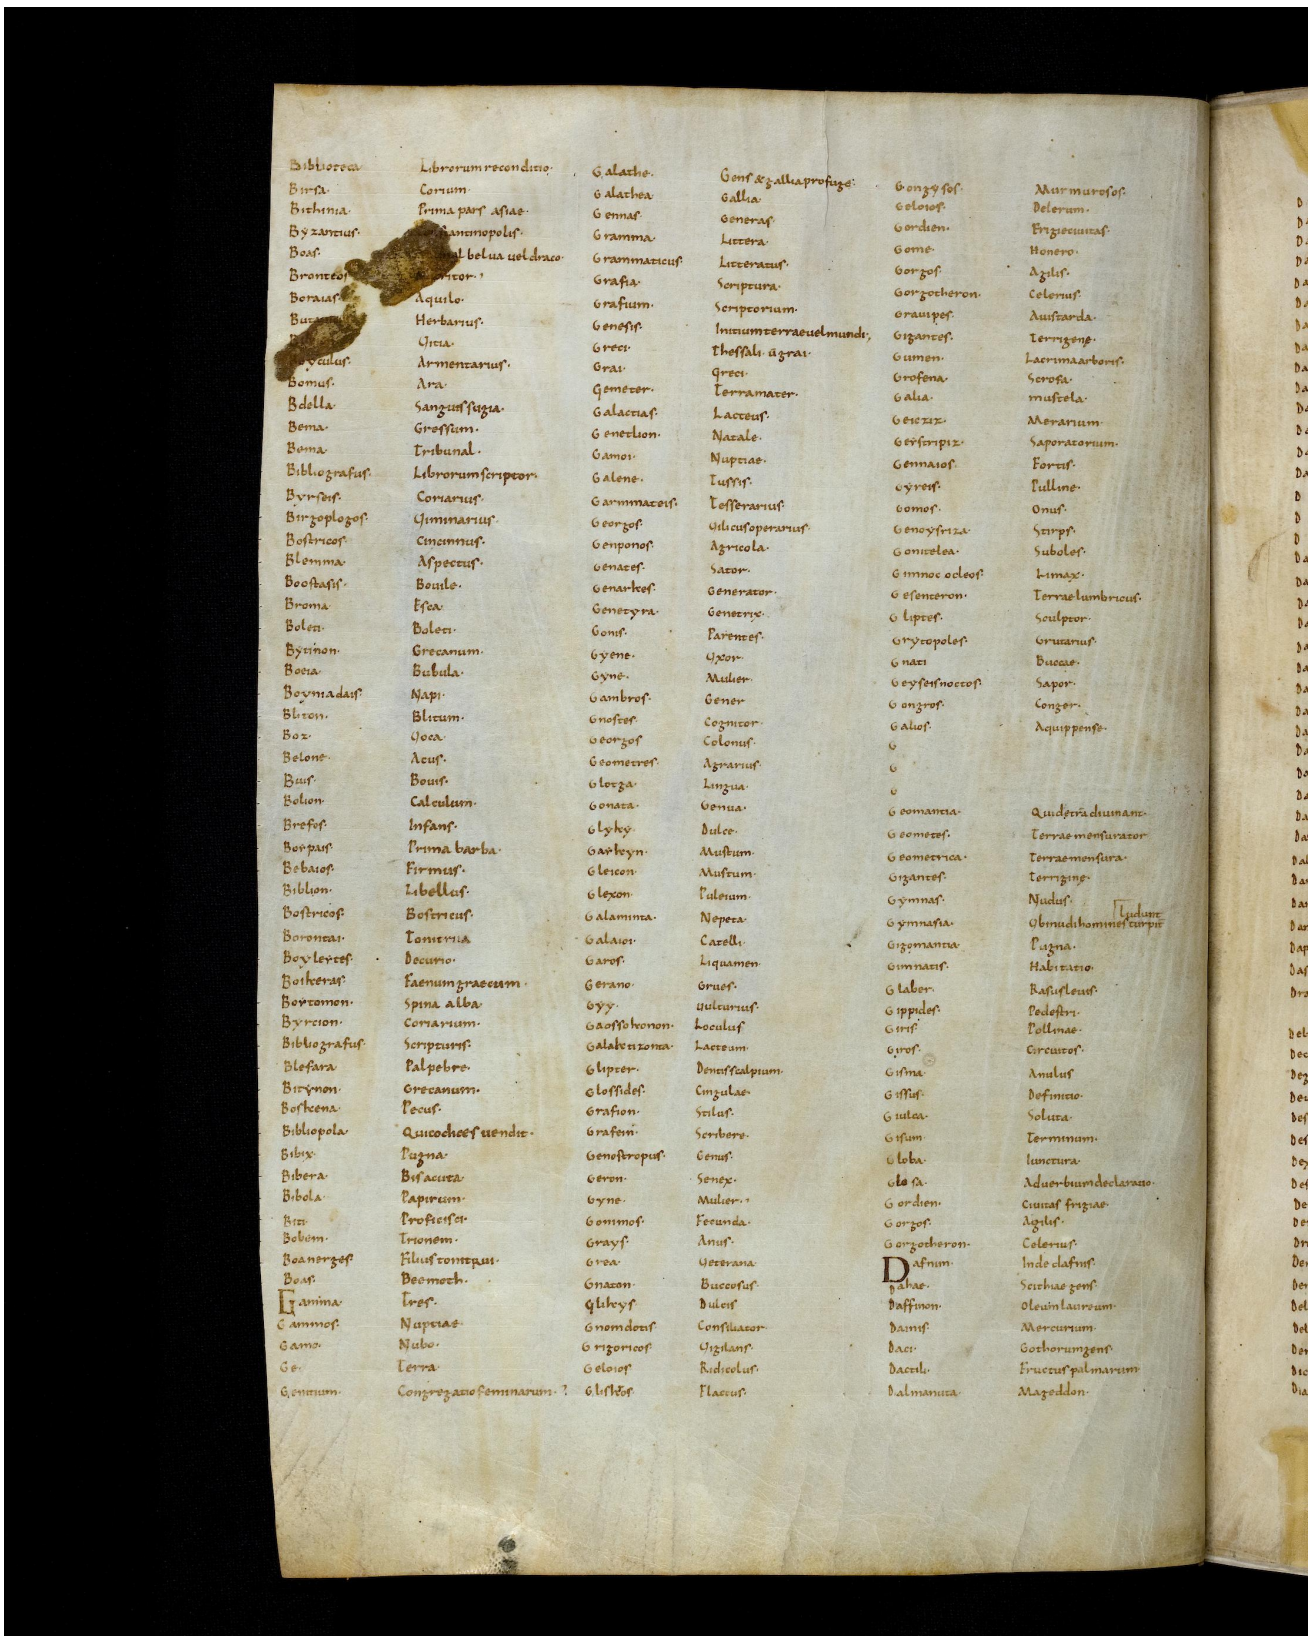 Biblioteca· Librorum reconditio·
Birsa· Corium·
Bithinia· Prima pars asiae·
Byzantius· antinopolis·
Boas· bel ua uel draco·
Bronteos
Boraias· Aquilo·
Herbarius·
Uitia·
Armentarius·
Bomus· Ara·
Bdella· Sanguissugia·
Bema· Gressum·
Bema· Tribunal·
Bibliografus· Librorum scriptor·
Byrseis· Coriarius·
Birgoplogos· Uiminarius·
Bostricos· Cincinnus·
Blemma· Aspectus·
Boostasis· Bouile·
Broma· Esca·
Boleti· Boleti·
Bytinon· Grecanum·
Boeia· Bubula·
Boyniadais· Napi·
Bliton· Blitum·
Box· Uoca·
Belone· Acus·
Buis· Bouis·
Bolion· Calculum·
Brefos· Infans·
Borpais· Prima barba·
Bebaios· Firmus·
Biblion· Libellus·
Bostricos· Bostricus·
Borontai· Tonitrua
Boyleytes· Decurio·
Boikeras· Faenum graecum·
Boytomon· Spina alba·
Byrcion· Coriarium·
Bibliografus· Scripturis·
Blefara· Palpebre·
Bitynon· Grecanum·
Boskena· Pecus·
Bibliopola· Qui codices uendit·
Bibix· Pugna·
Bibera· Bisacuta·
Bibola· Papirum·
Biti· Proficisci·
Bobem· Trionem·
Boanerges· Filius tonitrui·
Boas· Beemoth·
Gamma· Tres·
Gammos· Nuptiae·
Gamo· Nubo·
Ge· Terra·
Genitium· Congregatio feminarum·
Galathe· Gens & gallia profuge·
Galathea· Gallia·
Gennas· Generas·
Gramma· Littera·
Grammaticus· Litteratus·
Grafia· Scriptura·
Grafium· Scriptorium·
Genesis· Initium terrae uel mundi·
Greci· Thessali· ū grai·
Grai· Greci·
Gemeter· Terra mater·
Galactias· Lacteus·
Genetlion· Natale·
Gamoi· Nuptiae·
Galene· Tussis·
Garmmateis· Tesserarius·
Georgos· Uilicus operarius·
Genponos· Agricola·
Genates· Sator·
Genarkes· Generator·
Genetyra· Genetrix·
Gonis· Parentes·
Gyene· Uxor·
Gyne· Mulier·
Gambros· Gener
Gnostes· Cognitor·
Georgos· Colonus·
Geometres· Agrarius·
Glotga· Lingua·
Gonata· Genua·
Glyky· Dulce·
Garkeyn· Mustum·
Gleicon· Mustum·
Glexon· Puleium·
Galaminta· Nepeta·
Galaioi· Catelli·
Garos· Liquamen·
Gerano· Grues·
Gyy· Uulturius·
Gaossokonon· Loculus
Galaktizonta· Lacteum·
Glipter· Dentiscalpium·
Glossides· Cingulae·
Grafion· Stilus·
Grafein· Scribere·
Genostropus· Genus·
Geron· Senex·
Gyne· Mulier·
Gommos· Fecunda·
Grays· Anus·
Grea· Ueterana·
Gnaton· Buccosus·
Glikys· Dulcis
Gnomdotis Consiliator·
Grigoricos Uigilans·
Geloios· Ridicolus·
Gliskros· Flaccus·
Gongysos· Murmurosos·
Geloios· Delerum·
Gordien· Frigie ciuitas·
Gome· Honero·
Gorgos· Agilis·
Gorgotheron· Celerius·
Grauipes· Auistarda·
Gigantes· Terrigene·
Gumen· Lacrima arboris·
Grofena· Scrofa·
Galia· mustela·
Geiczix· Merarium·
Geystripiz· Saporatorium·
Gennaios· Fortis·
Gyreis· Pulline·
Gomos· Onus·
Genoysriza· Stirps·
Gonitelea· Suboles·
Gimnococleos· Limax·
Gesenteron· Terrae lumbricus·
Gliptes· Sculptor·
Grytopoles· Grutarius·
Gnati Buccae·
Geyseisnoctos· Sapor·
Gongros· Conger·
Galios· Aquippense·
G
G
G
Geomantia· Qui de trā diuinant·
Geometes· Terrae mensurator
Geometrica· Terrae mensura·
Gigantes· Terrigine·
Gymnas· Nudus·
Gymnasia· Ubi nudi homines turpit ludunt
Gigomantia· Pugna·
Gimnatis· Habitatio·
Glaber· Rasus leuis·
Gippides· Pedestri·
Giris· Pollinae·
Giros· Circuitos·
Gisma· Anulus
Gissus· Definitio·
Giulca· Soluta·
Gisum· Terminum·
Globa· Iunctura·
Glosa· Aduerbium declaratio·
Gordien· Ciuitas frigiae·
Gorgos· Agilis·
Gorgotheron· Celerius·
Dafnum· Inde dafnis·
Dahae· Scithiae gens·
Daffinon· Oleum laureum·
Damis· Mercurium·
Daci· Gothorum gens·
Dactili· Fructus palmarum·
Dalmanuta· Mageddon·